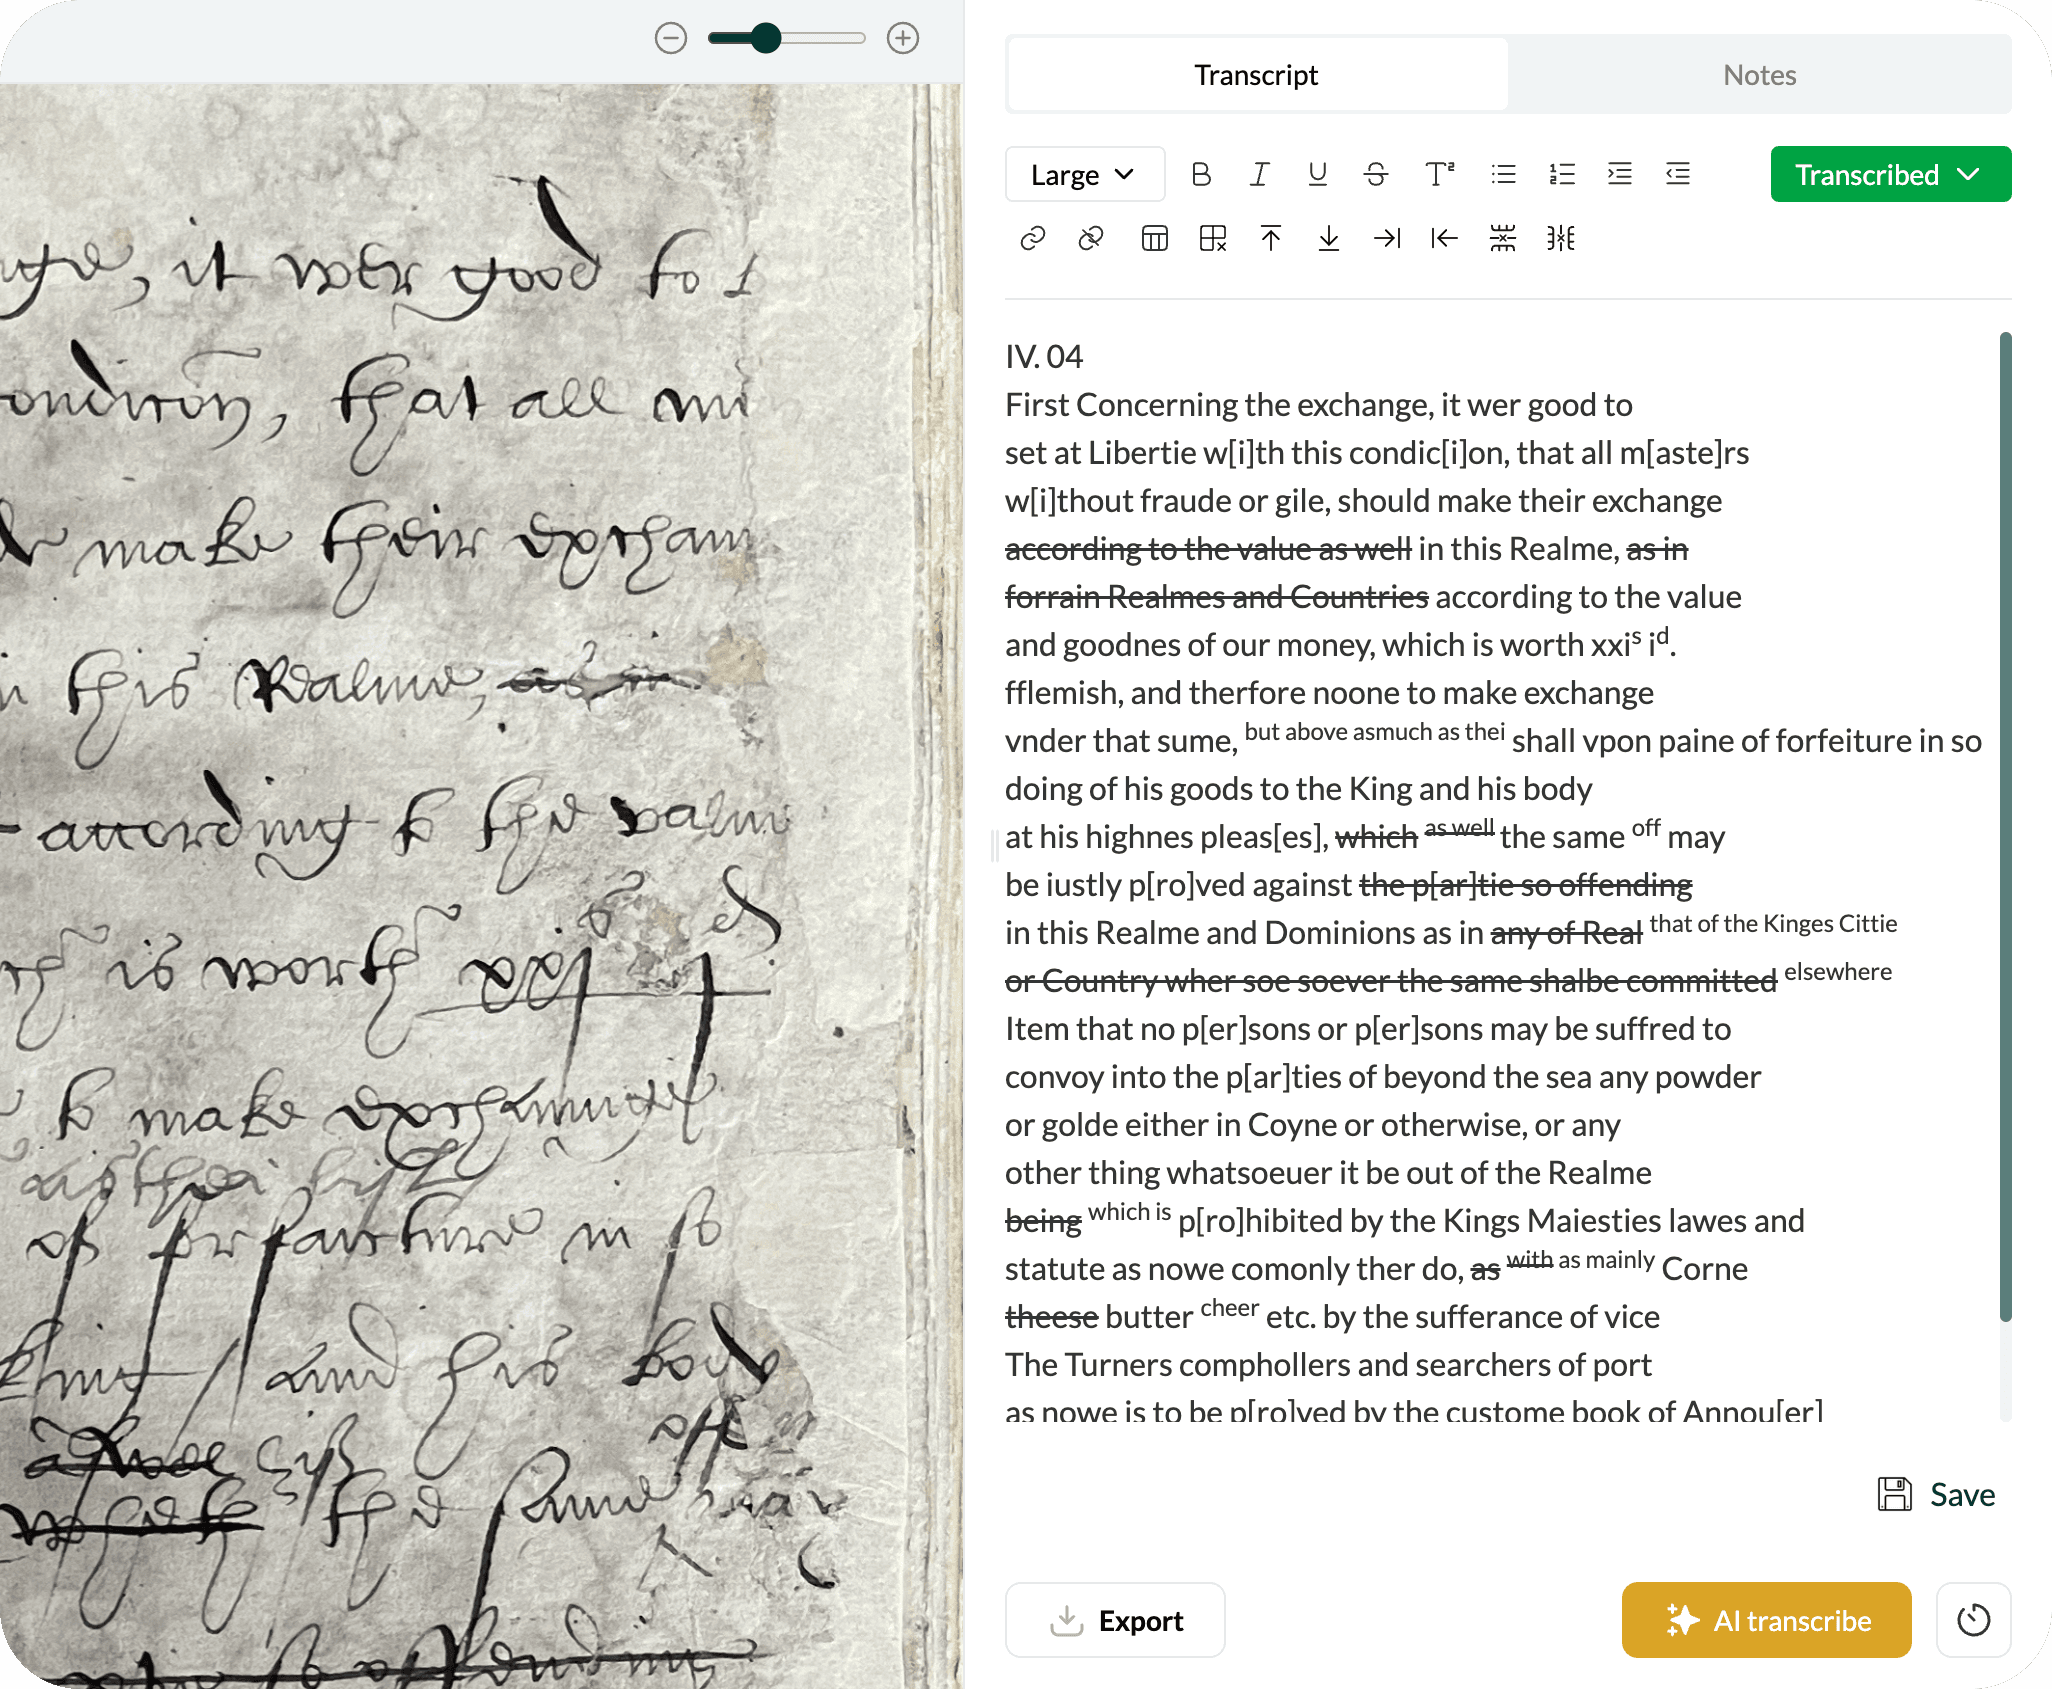 Transcript
Notes
Large
Transcribed
nge, it wer good to
condicion, that all
make their exchan
this Realme, as in
according to the value
is worth xxj s j d
to make exchaunge
of forfaiture in so
king and his body
as well off
which the same may
so offending
IV. 04
First Concerning the exchange, it wer good to
set at Libertie w[i]th this condic[i]on, that all m[aste]rs
w[i]thout fraude or gile, should make their exchange
according to the value as well in this Realme, as in
forrain Realmes and Countries according to the value
and goodnes of our money, which is worth xxiˢ iᵈ.
fflemish, and therfore noone to make exchange
vnder that sume, but above asmuch as thei shall vpon paine of forfeiture in so
doing of his goods to the King and his body
at his highnes pleas[es], which as well the same off may
be iustly p[ro]ved against the p[ar]tie so offending
in this Realme and Dominions as in any of Real that of the Kinges Cittie
or Country wher soe soever the same shalbe committed elsewhere
Item that no p[er]sons or p[er]sons may be suffred to
convoy into the p[ar]ties of beyond the sea any powder
or golde either in Coyne or otherwise, or any
other thing whatsoeuer it be out of the Realme
being which is p[ro]hibited by the Kings Maiesties lawes and
statute as nowe comonly ther do, as with as mainly Corne
theese butter cheer etc. by the sufferance of vice
The Turners comphollers and searchers of port
as nowe is to be p[ro]ved by the custome book of Annou[er]
Save
Export
AI transcribe